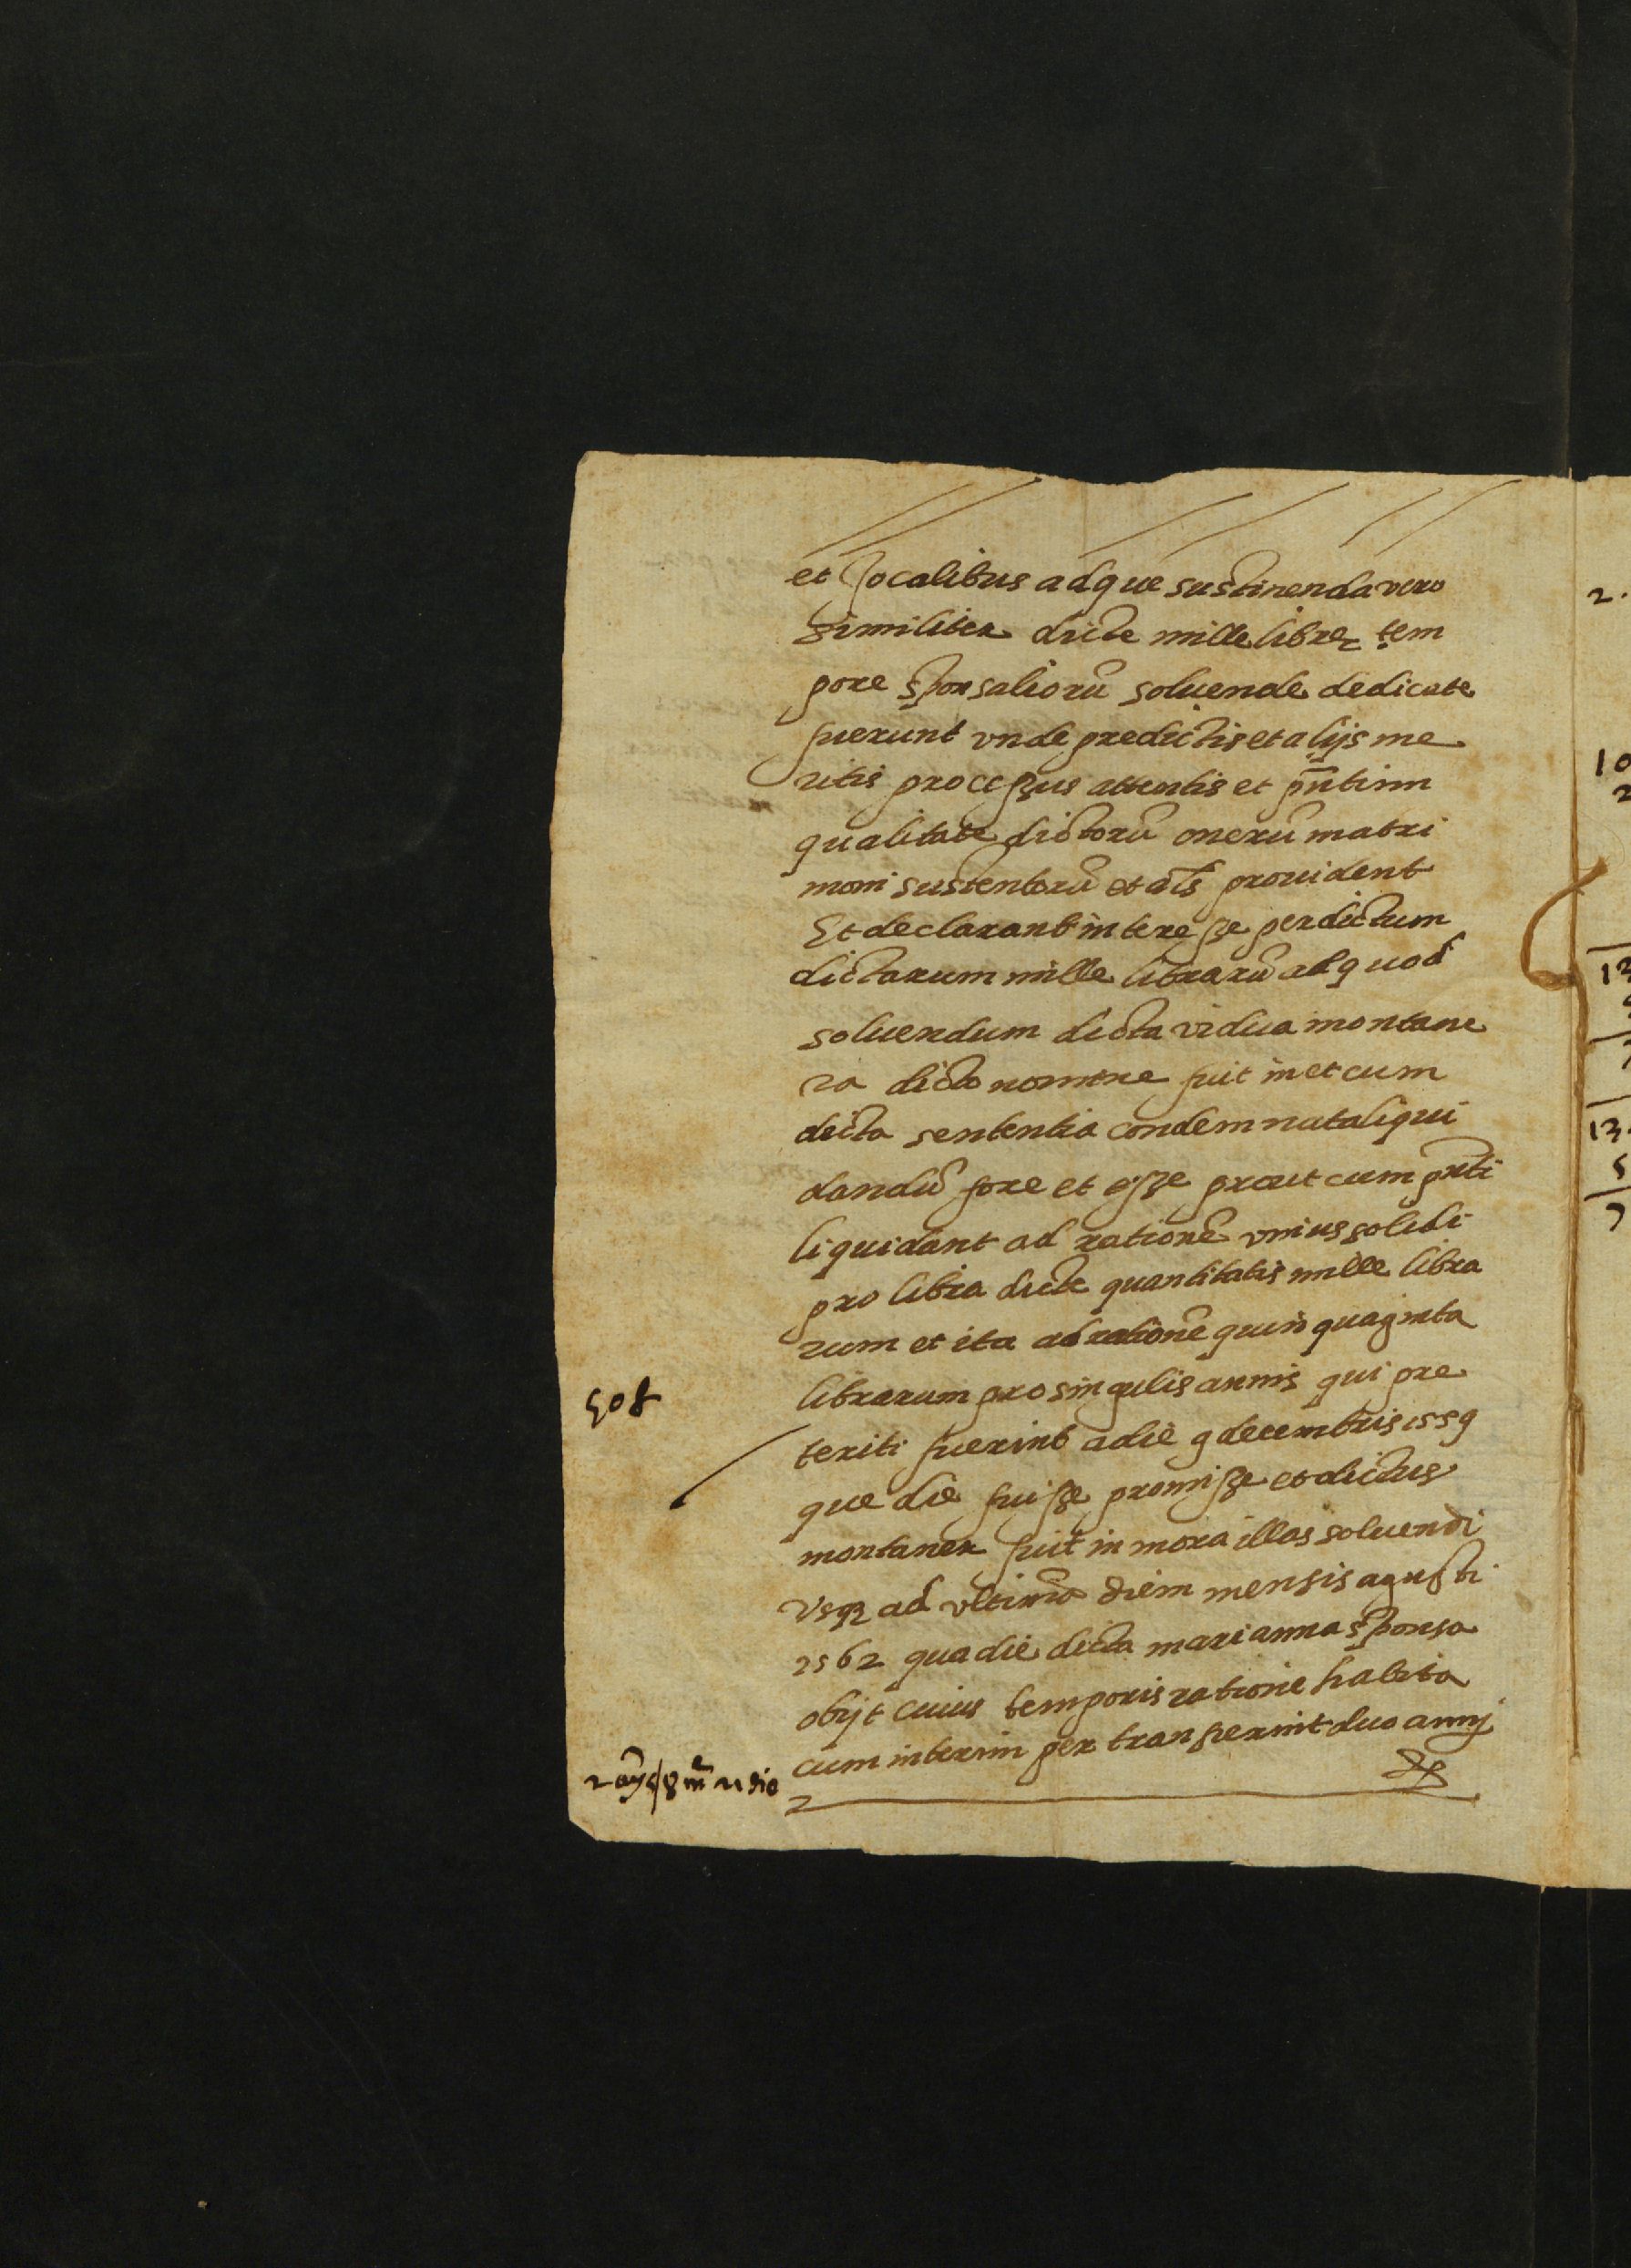 et Jocalibus ad que sustinenda vero
similiter dicte mille libre tem
pore sponsaliorũ soluende dedicate
fuerunt vnde predictis et alijs me
ritis processus attentis et pñtim
qualitate dictorũ onerũ matri
moni sustentorũ et als prouident
Et declarant interesse perdictum
dictarum mille librarũ ad quod
soluendum dicta vidua montane
ra dicto nomine fuit in et cum
dicta sententia condemnata liqui
dandũ fore et esse prout cum pñti
liquidant ad rationẽ vnius solidi
pro libra dicte quantitatis mille libra
rum et ita ad rationẽ quinquaginta
librarum pro singulis annis qui pre
teriti fuerint a die 9 decembris 1559
que die fuisse promisse et dictus
montaner fuit in mora illas soluendi
vsq3 ad vltimũ diem mensis agusti
1562 qua die dicta marianna sponsa
obijt cuius temporis ratione habita
cum interim per transierint duo annj
50 ₶
2 añys 8 m 21 die
2.
10
2
12
13